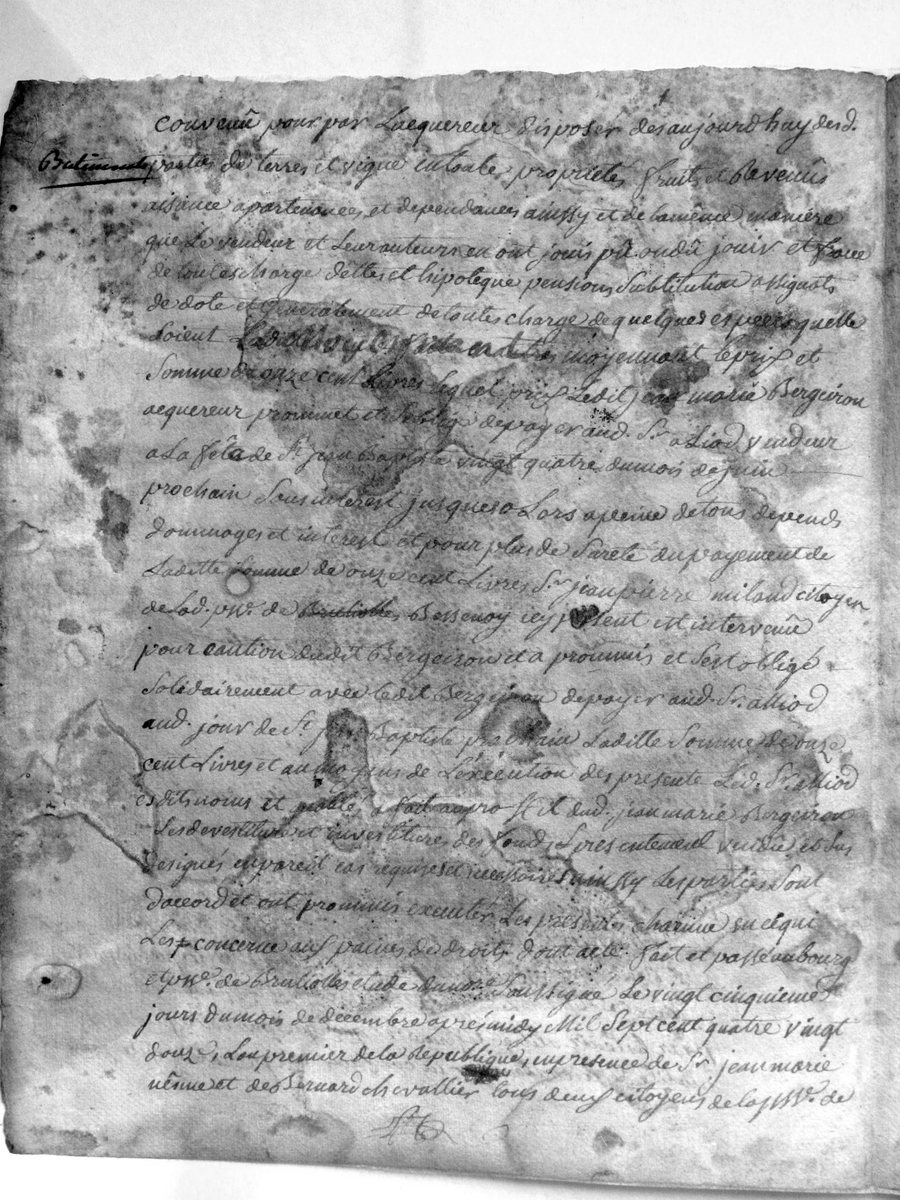 convenû pour par Lacquereur disposer des aujourd huy des d.
Batiments parties de terres et vigne en toutes proprietes fruits et Revenûs
aisance apartenances et dependances ainssy et de la mème maniere
que Le vendeur et Leurs auteurs en ont jouis pû ou dû jouir et franc
de toutes charge dettes et hipoteque pensions Substitution assignats
de dote et generalement de toutes charge de quelques especes quelle
Soient moyennant le prix et
Somme de onze cent Livres lequel prix Ledit jean marie Bergeiron
acquereur prommet et S'oblige de payer aud. Sr. alliod vendeur
a La fête de St. jean Baptiste vingt quatre du mois de juin
prochain Sans interest jusques a Lors a peine de tous depends
dommages et interest et pour plus de Sureté du payement de
Laditte Somme de onze cent Livres Sr. jean pierre miland citoyen
de Lad. psse. de Brulliolles Bessenay icy present et intervenû
pour caution dudit Bergeiron et a prommis et S'est obligé
Solidairement avec ledit Bergeiron de payer aud. Sr. alliod
aud. jour de St. jean Baptiste prochain Laditte Somme de onze
cent Livres et au moyens de L'exécution des presente Led. Sr. alliod
esdits noms et qualité a fait au proffit dud. jean marie Bergeiron
Les devestiture et investiture des fonds presentement vendû et
designés en pareil cas requises et necessaires ainssy Les parties Sont
d'accord et ont prommis executer Les presentes chacune en ce qui
Les concerne aux paines de droits dont acte fait et passé au bourg
et psse. de Brulliolles etude du nore. Soussigné Le vingt cinquieme
jours du mois de décembre aprés midy Mil Sept cent quatre vingt
douze, L'an premier de la Republique, en presence de Sr. jean marie
et de Bernard chevallier tous deux citoyens de la psse. de